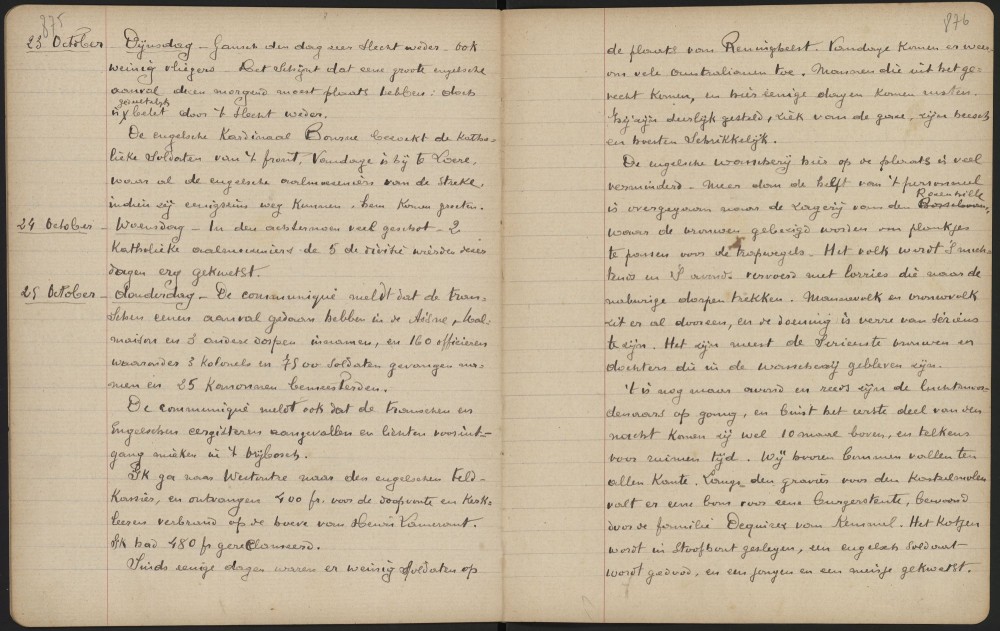 875
23 October - Dijnsdag - Gansch den dag zeer slecht weder - ook
weinig vliegers - Het schijnt dat eene groote engelsche
aanval dezen morgend moest plaats hebben: doch
gezuchelijk
is belet door 't slecht weder.
De engelsche Kardinaal Bourne bezoekt de katho-
lieke soldaten van 't front, Vandage is hij te Loere,
waar al de engelsche aalmoeseniers van de streke,
indien zij eenigszins weg kunnen, hem komen groeten.
24 October - Woensdag - In den achternoen veel geschot - 2
Katholieke aalmoeseniers de 5de divisie wierden dezer
dagen erg gekwetst.
25 October - Donderdag - De communiqué meldt dat de fran-
schen eenen aanval gedaan hebben in de Aisne, Mal-
maison en 3 andere dorpen innamen, en 160 officieren
waaronder 3 kolonels en 7500 soldaten gevangen na-
men en 25 Kanonnen bemeesterden.
De communiqué meldt ook dat de franschen en
Engelschen eergisteren aangevallen en lichten vooruit-
gang mieken in 't Vrijbosch.
Ik ga naar Westoutre naar den engelschen Feld-
Kassier, en ontvangen 400 fr. voor de doopvonte en Kerk-
leesen verbrand op de hoeve van Henri Lamerant.
Ik had 480 fr gereclameerd.
Sinds eenige dagen waren er weinig soldaten op
876
de plaats van Reninghelst. Vandage komen er weer
ons vele Australianen toe. Mannen die uit het ge-
vecht komen, en hier eenige dagen komen rusten.
Zij zijn deerlijk gesteld, ziek van de gaze, zijn heesch
en hoesten schrikkelijk.
De engelsche wasscherij hier op de plaats is veel
verminderd - meer dan de helft van 't personneel
is overgegaan naar de zagerij van den
Rozenhille
Bosseboom,
waar de vrouwen gebezigd worden om plankjes
te passen voor de trapwegels - Het volk wordt 's nuch-
tends en 's avonds vervoerd met lorries die naar de
naburige dorpen trekken. Mannevolk en vrouwvolk
zit er al dooreen, en de doening is verre van sérieus
te zijn. Het zijn meest de serieuste vrouwen en
dochters die in de wasscherij gebleven zijn.
't is nog maar avond en reeds zijn de luchtmoor-
denaars op gang, en binst het eerste deel van den
nacht komen zij wel 10 maal boven, en telkens
voor ruimen tijd. Wij hooren bommen vallen ten
allen Kante. Langs den gravier voor den Kasteelmolen
valt er eene bom voor eene burgerstente, bewoond
door de familie Dequicer van Kemmel. Het Kotjen
wordt in stoofhout geslegen, een engelsch soldaat
wordt gedood, en een jongen en een meisje gekwetst.